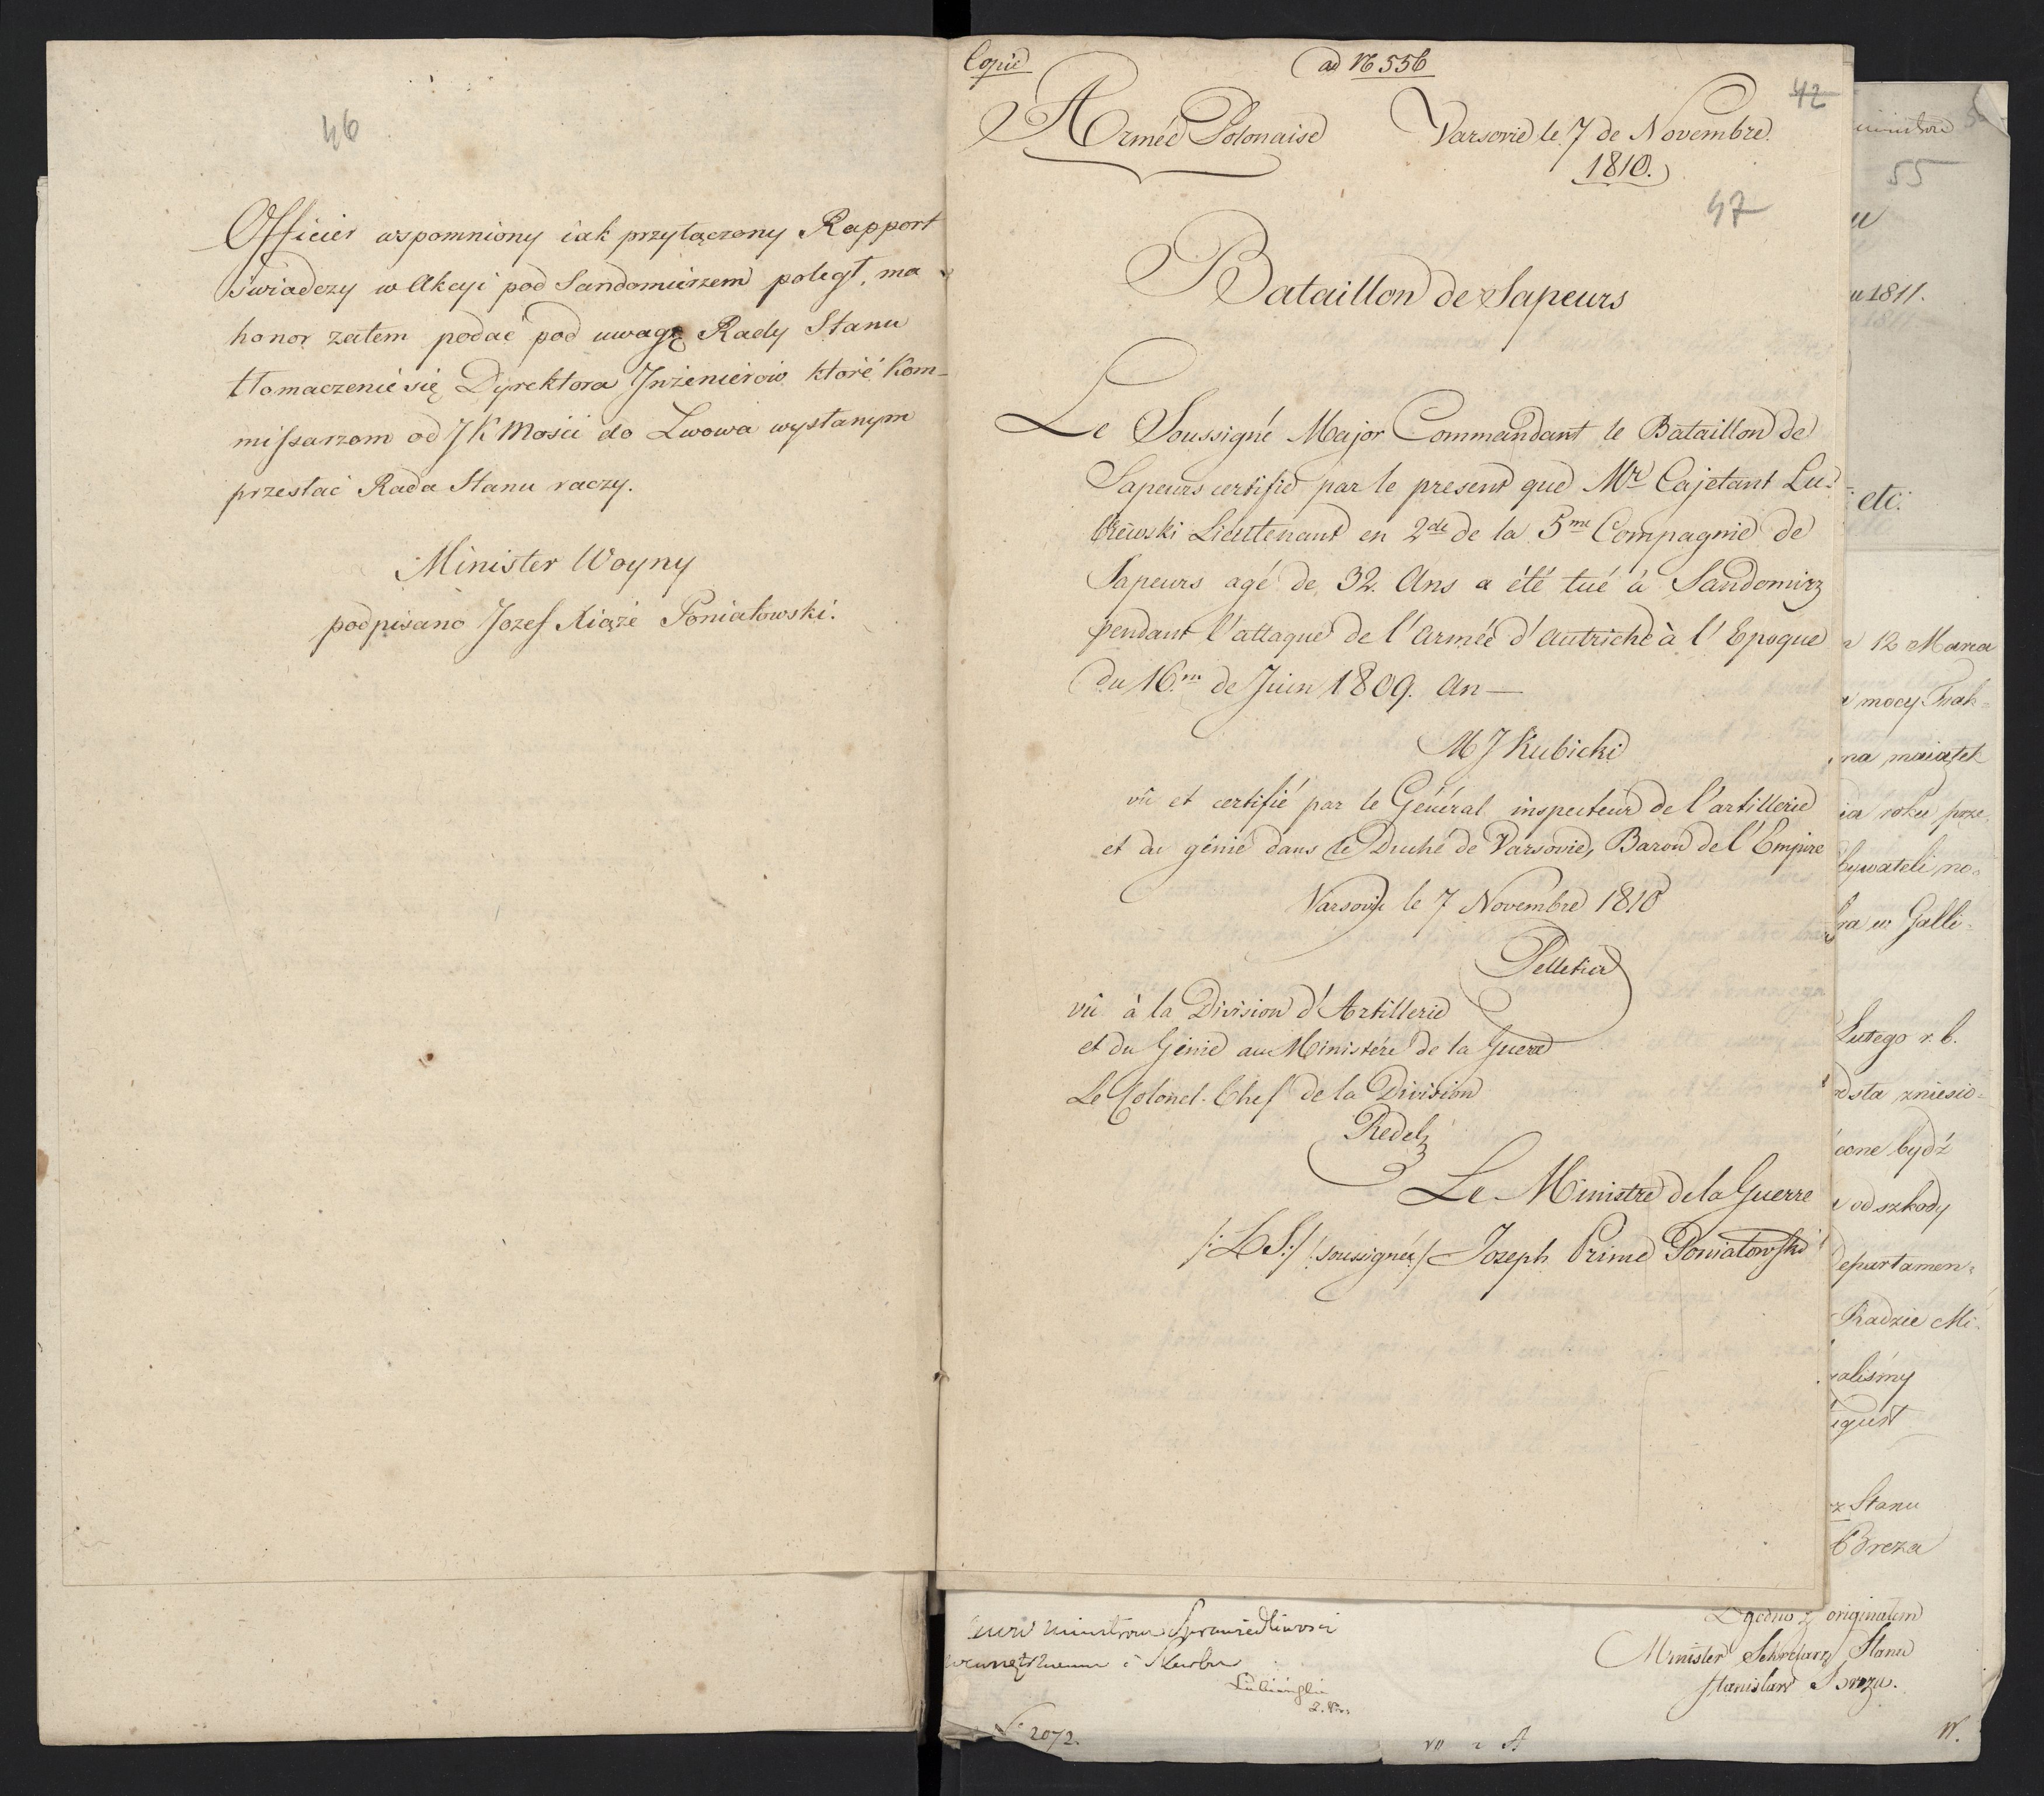 46
Officier wspomniony iak przyłączony Rapport
świadczy w Akcyi pod Sandomierzem poległ, ma
honor zatem podać pod uwagę Rady Stanu
tłomaczenie się Dyrektora Inżenierów które Kom-
missarzom od JK Mości do Lwowa wysłanym
przesłać Rada Stanu raczy.
Minister Woyny
podpisano Jozef Xiąże Poniatowski.
Copie
ad No 556
42
Armée Polonaise
Varsovie le 7 de Novembre.
1810.
47
Bataillon de Sapeurs
Le Soussigné Major Commandant le Bataillon de
Sapeurs certifie par le present que Mr Cajetant Lu-
brewski Lieutenant en 2de de la 5me Compagnie de
Sapeurs agé de 32. Ans a été tué à Sandomirz
pendant l'attaque de l'Armée d'Autriche à l'Epoque
du 16.m de Juin 1809. An —
M J Kubicki
vû et certifié par le Général inspecteur de l'artillerie
et du génie dans le Duché de Varsovie, Baron de l'Empire
Varsovie le 7 Novembre 1810
Pelletier
vû à la Division d'Artillerie
et du Génie au Ministére de la Guere
Le Colonel Chef de la Division
Redel
Le Ministre de la Guerre
/: L S :/ /: soussigné :/ Joseph Prince Poniatowski
55
u 1811.
etc:
12 Marca
mocy Trak-
na maiątek
roku prze-
bywateli no-
w Galli-
Lutego r. b.
sta zniesio-
cone bydź
od szkody
Departamen-
Radzie Mi-
aliśmy
Stanu
Breza
Zgodno z originałem
Minister Sekretarz Stanu
Stanisław Breza.
Sprawiedliwości
i Skarbu
Łubieński
2072.